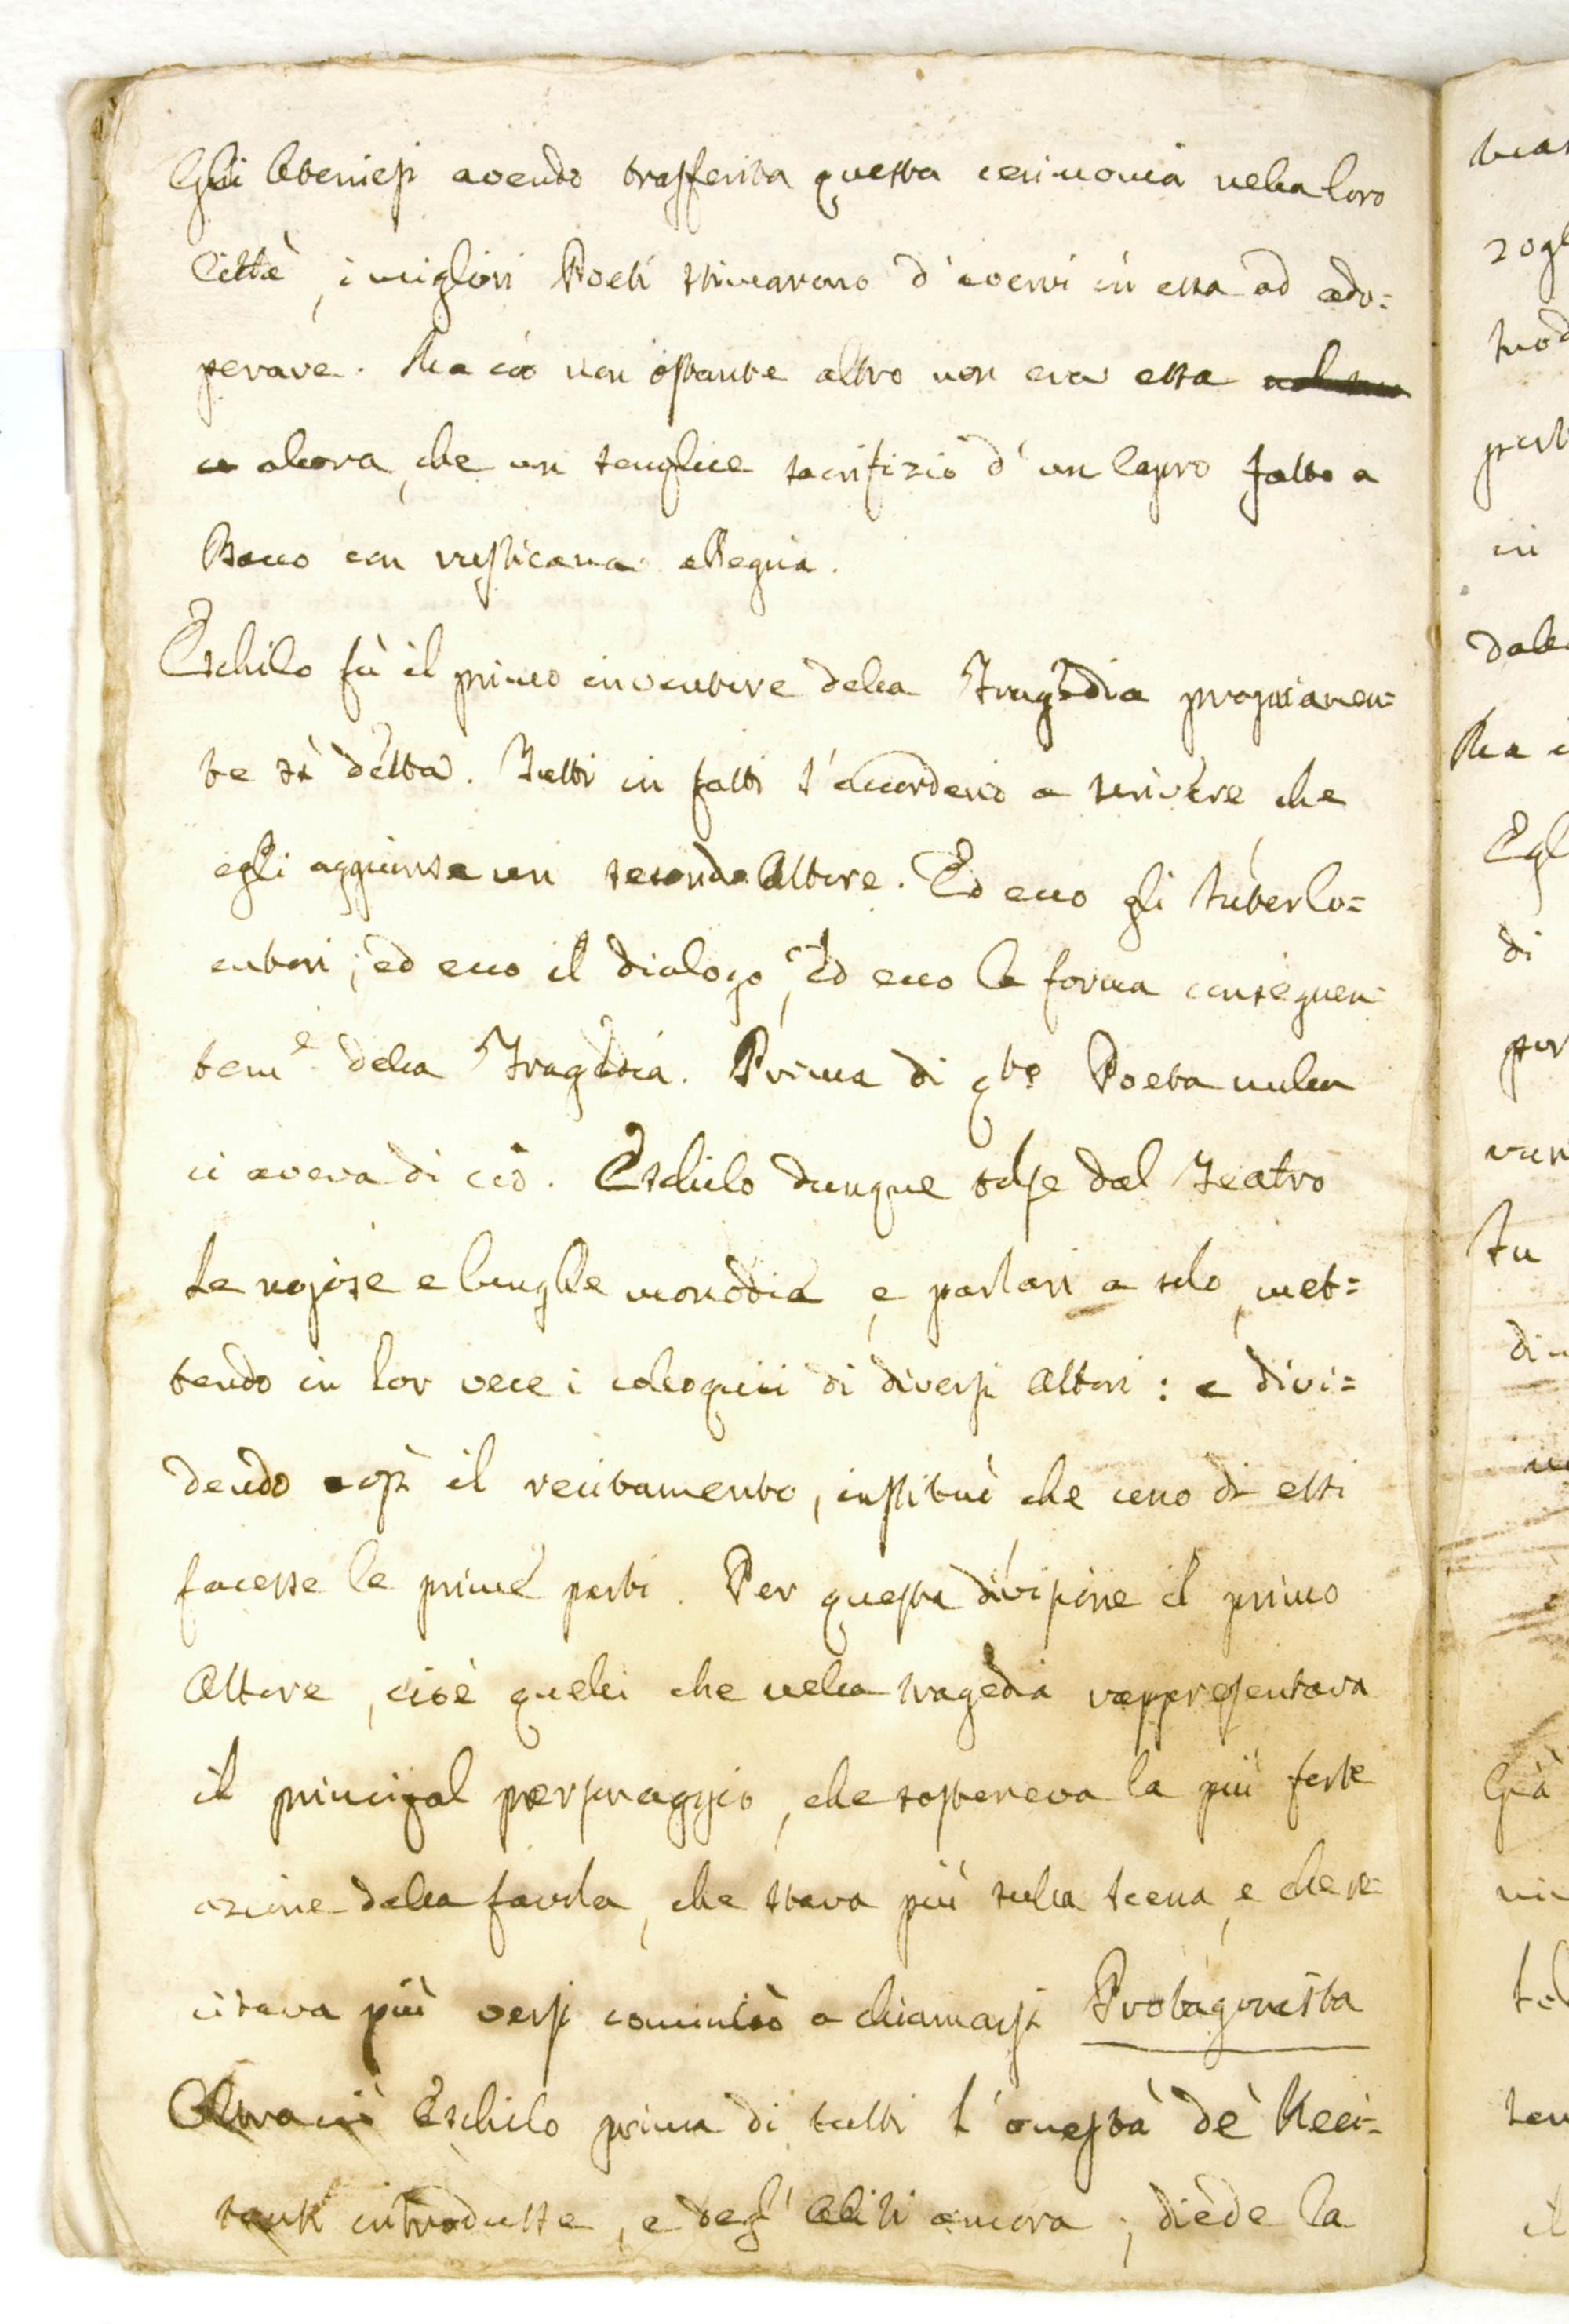 Gli Ateniesi avendo trasferita questa cerimonia nella loro
Città, i migliori Poeti stimarono d'avervi in essa ad ado=
perare. Ma ciò non ostante altro non era essa
allora, che un semplice sacrifizio d'un Capro fatto a
Bacco con rusticana allegria.
Eschilo fù il primo inventore della Tragedia propriamen=
te sì detta. Tutti in fatti s'accordano a scrivere che
egli aggiunse un secondo Attore. Ed ecco gli Interlo=
cutori; ed ecco il dialogo, Ed ecco la forma conseguen=
tem.e della Tragedia. Prima di q.to Poeta nulla
ci aveva di ciò. Eschilo dunque tolse dal Teatro
Le nojose e lunghe monodie, e parlari a solo, met=
tendo in lor vece i colloquii di diversi Attori: e divi=
dendo così il recitamento, instituì che uno di essi
facesse le prime parti. Per questa divisione il primo
Attore, cioè quelli che nella tragedia rappresentava
il principal personaggio, che sosteneva la più forte
azione della favola, che stava più sulla scena, e che re=
citava più versi cominciò a chiamarsi Protagonista
Oltracciò Eschilo prima di tutti l'onestà de' Reci=
tanti introdusse, e degl'Abiti ancora; diede la
mar
zog
in
Ma
Egl
di
per
In
di
Già
il